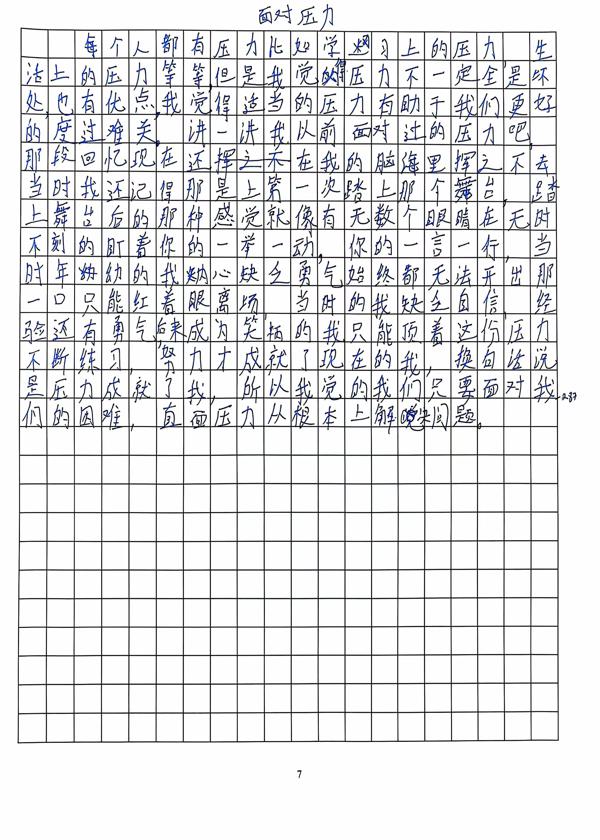 面对压力
每个人都有压力比如学习上的压力,生
活上的压力等等,但是我觉得压力不一定全是坏
处,也有优点,我觉得适当的压力有助于我们更好
的度过难关,讲一讲我以前面对过的压力吧,
那段回忆现在还挥之不在我的脑海里挥之不去
当时我还记得那是上第一次踏上那个舞台,踏
上舞台后的那种感觉就像有无数个眼睛在无时
不刻的盯着你的一举一动,你的一言一行,当
时年幼的我心缺乏勇气始终都无法开出那
一口只能红着眼离场,当时的我缺乏自信,经
验还有勇气,后来成为笑柄的我只能顶着这份压力
不断练习,努力才成就了现在的我,换句话说
是压力成就了我,所以我觉的我们只要面对我
们的困难,直面压力从根本上解决问题。
7